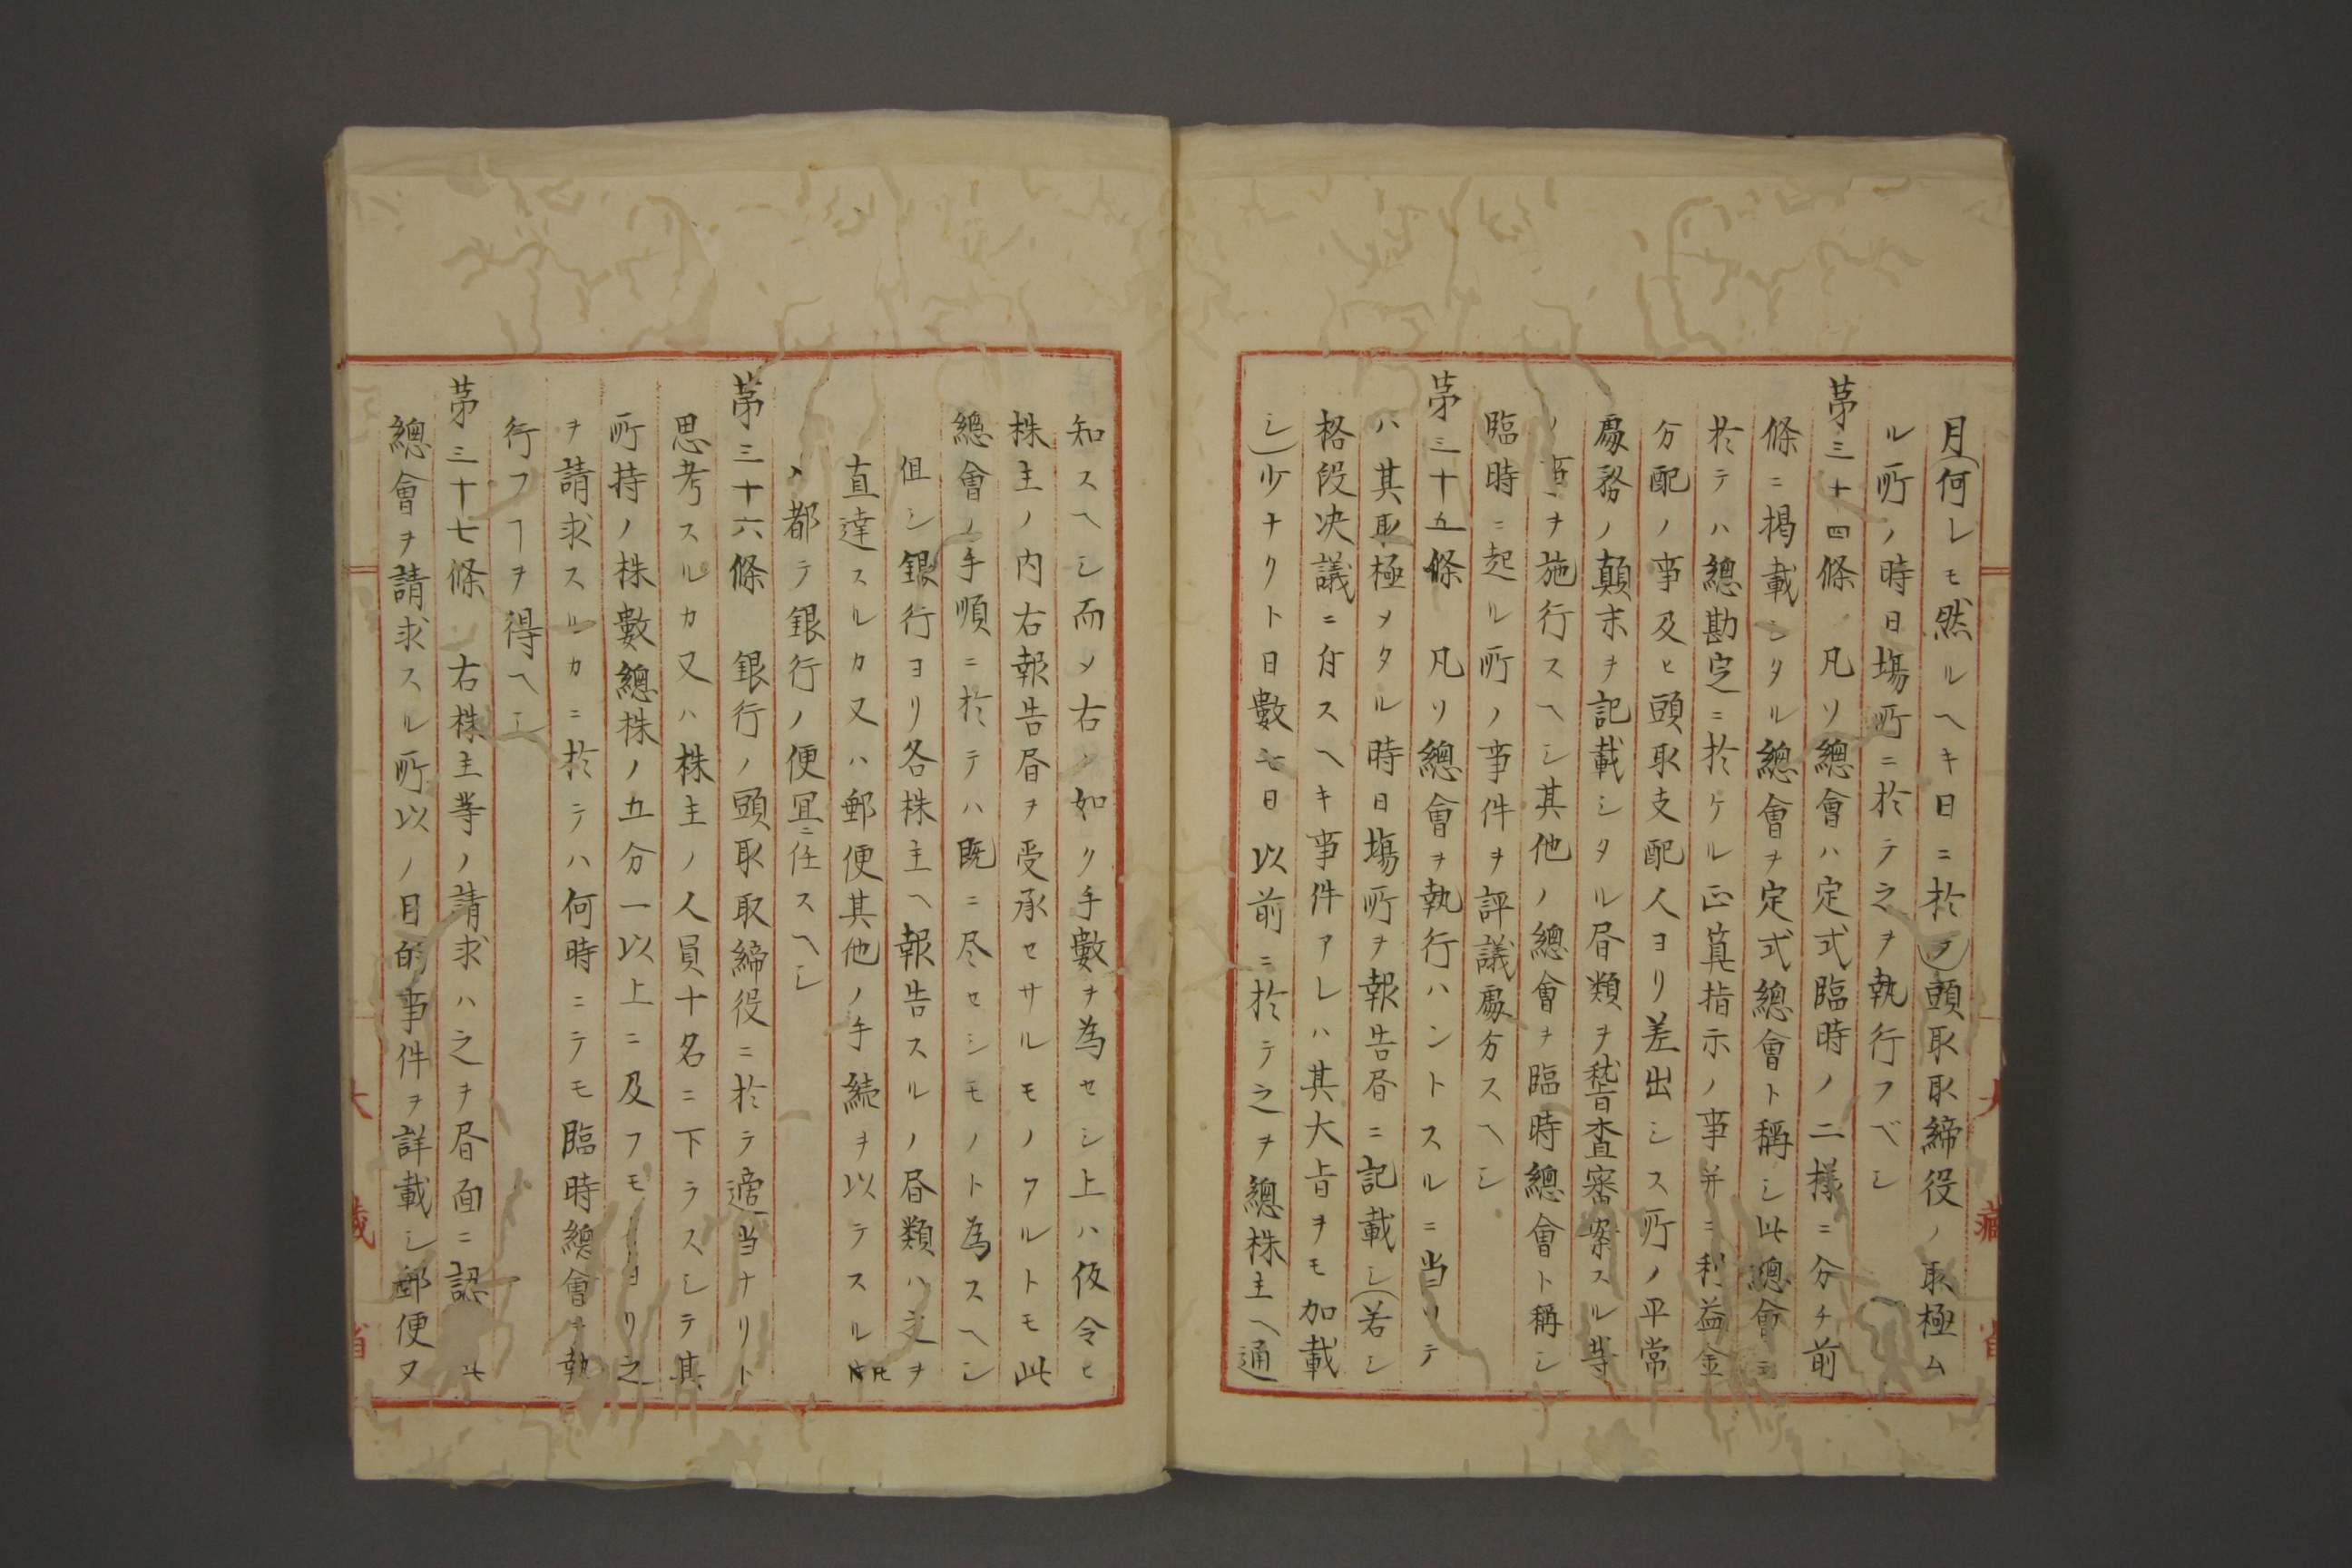 月(何レモ然ルヘキ日ニ於ヲ)頭取取締役ノ取極ム
ル所ノ時日塲所ニ於テ之ヲ執行フベシ
第三十四條 凡ソ總會ハ定式臨時ノ二樣ニ分チ前
條ニ掲載シタル總會ヲ定式總會ト稱シ此總會ニ
於テハ總勘定ニ於ケル正算指示ノ事并ニ利益金
分配ノ事及ヒ頭取支配人ヨリ差出シス所ノ平常
處務ノ顛末ヲ記載シタル昬類ヲ嵆查審案スル等
ノ事ヲ施行スヘシ其他ノ總會ヲ臨時總會ト稱シ
臨時ニ起ル所ノ事件ヲ評議處分スヘシ
第三十五條 凡ソ總會ヲ執行ハントスルニ当リテ
ハ其取極メタル時日塲所ヲ報告昬ニ記載シ(若シ
格段决議ニ付スヘキ事件アレハ其大旨ヲモ加載
シ)少ナクト日數七日以前ニ於テ之ヲ總株主ヘ通
知スヘシ而メ右ノ如ク手數ヲ為セシ上ハ仮令ヒ
株主ノ内右報告昬ヲ受承セサルモノアルトモ此
總會ノ手順ニ於テハ既ニ尽セシモノト為スヘシ
伹シ銀行ヨリ各株主ヘ報告スルノ昬類ハ之ヲ
直達スルカ又ハ郵便其他ノ手続ヲ以テスル
ハ都テ銀行ノ便冝ニ任スヘシ
第三十六條 銀行ノ頭取取締役ニ於テ適当ナリト
思考スルカ又ハ株主ノ人員十名ニ下ラスシテ其
所持ノ株數總株ノ五分一以上ニ及フモノヨリ之
ヲ請求スルカニ於テハ何時ニテモ臨時總會ヲ執
行フヿヲ得ヘシ
第三十七條 右株主等ノ請求ハ之ヲ昬面ニ認此
總會ヲ請求スル所以ノ目的事件ヲ詳載シ郵便又
大藏省
大藏省